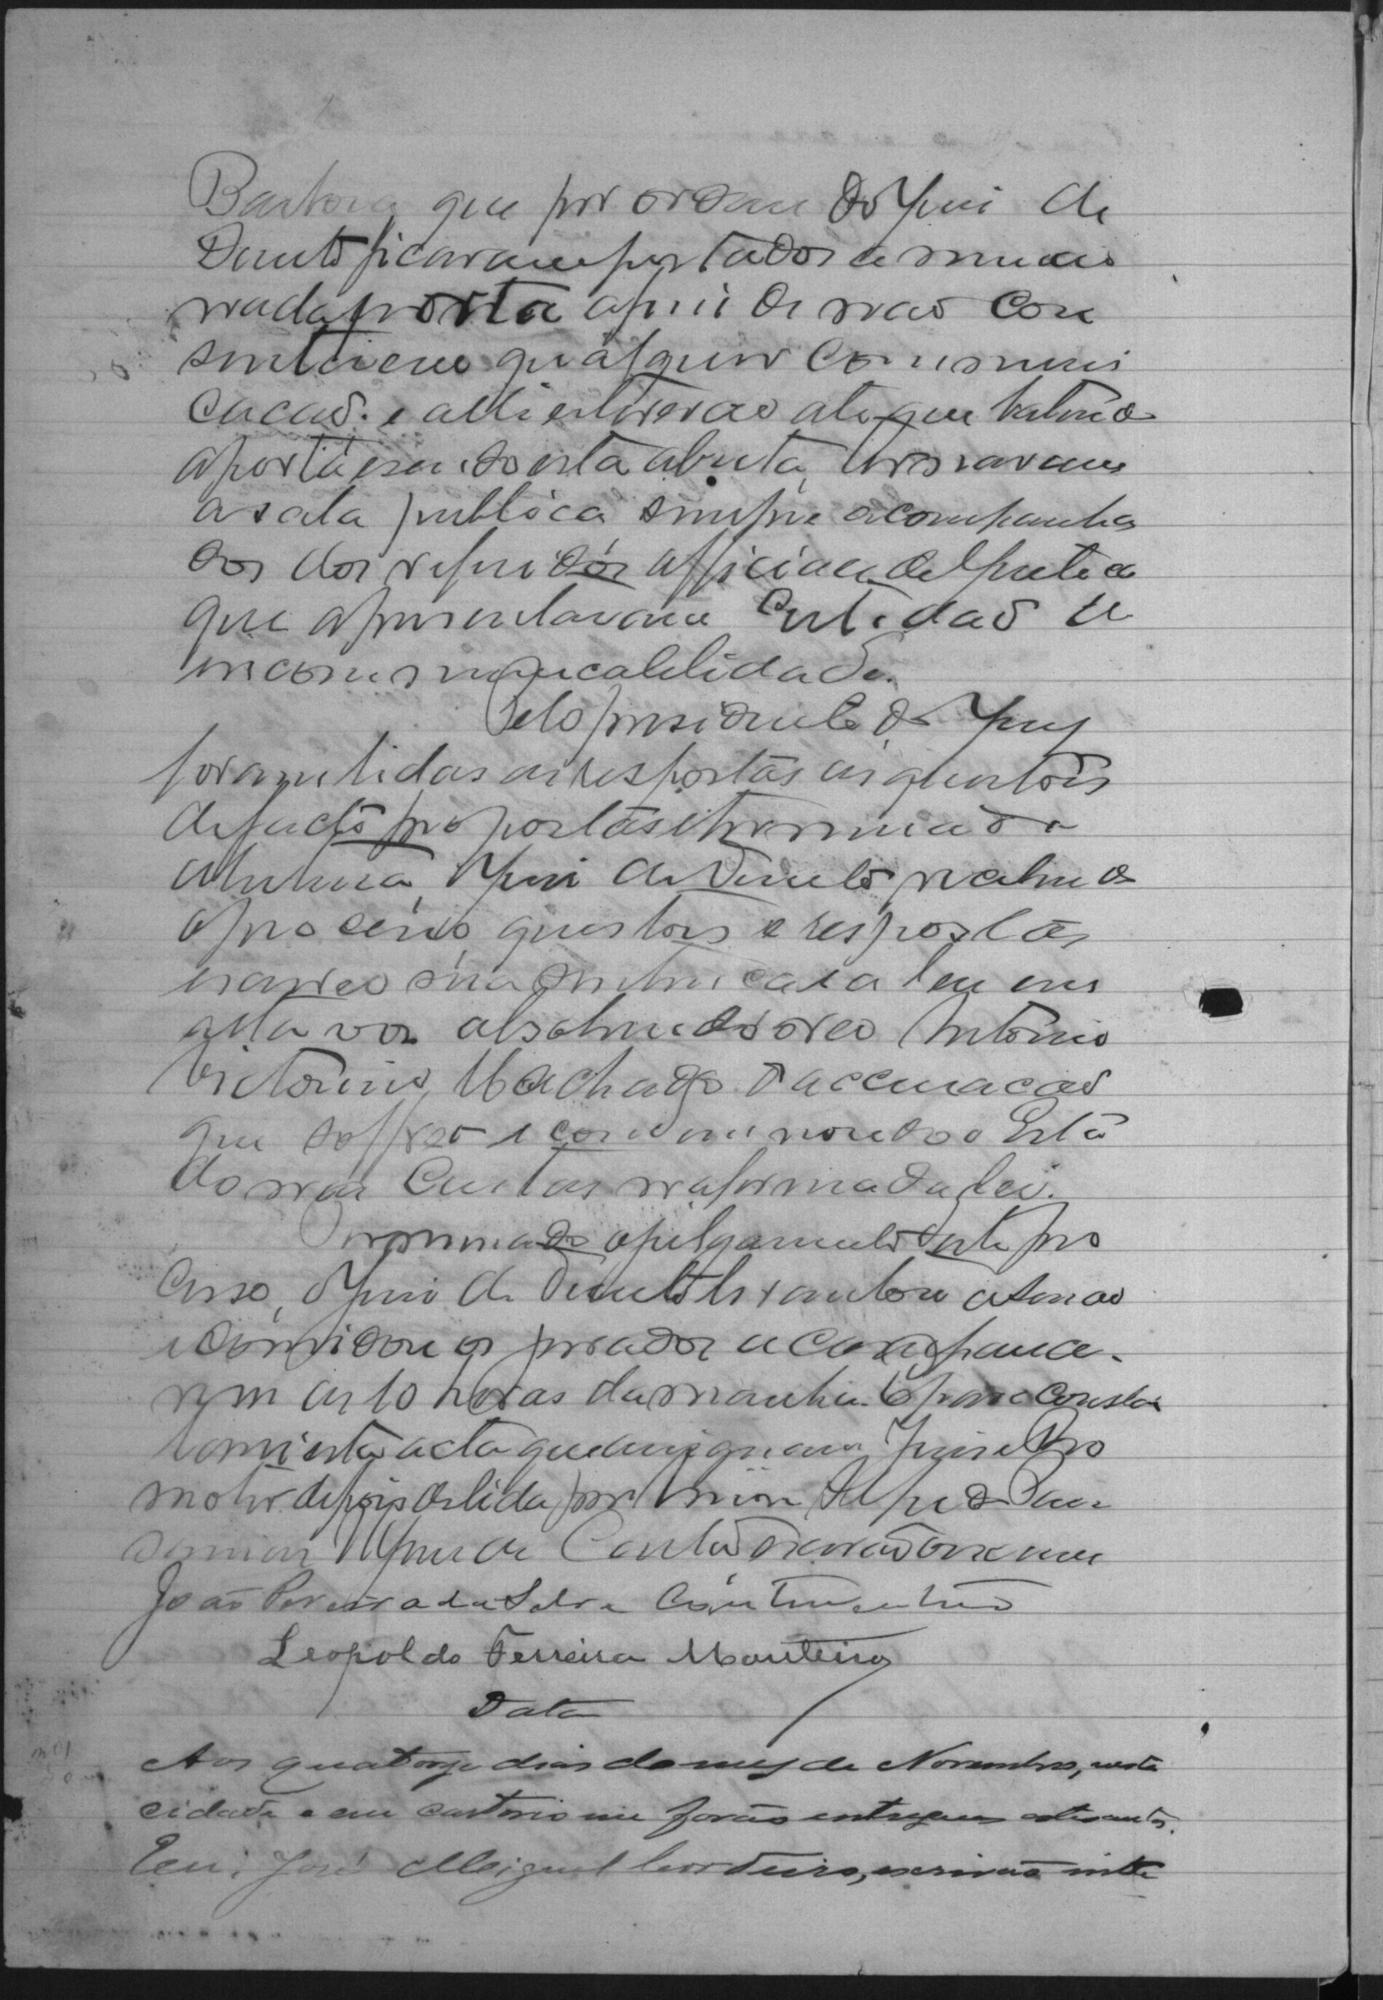 Barbosa, que por ordem do Juiz de
Direito ficaram postados a mencio
nada porta afim de não con
sentirem qualquer communi
cacão. e alli estiverão ate que batendo
a porta esendo esta aberta, tornaram
a sala publica sempre acompanha
dos dos referidos officiaes de Justiça
que apresentaram Certidão de
incommunicabilidade.
Pelo presidente do Jury
foram lidas as respostas as questões
de facto propostas e terminado a
leitura, o Juiz de Direito recebendo
o processo questões e respostas
lavrou sua sentença e a leu em
alta voz absolvendo o reo Antonio
Victorino Machado d'accusacão
que soffreo e condemnando o Esta
do nas Custas na forma da lei.
Terminado o julgamento deste pro
cesso, o Juiz de Direito levantou a sessão
e convidou os jurados a comparece-
rem as 10 horas da manhã. E para constar
lavrei esta acta que assignam Juiz e Pro
motor depois de lida por mim
escrivão
João Pereira da Silva
Leopoldo Ferreira Monteiro
Data
Aos quatorze dias do mez de Novembro, nesta
cidade e em cartorio me forão entregues estes autos.
Eu, José Miguel Cordeiro, escrivão inte